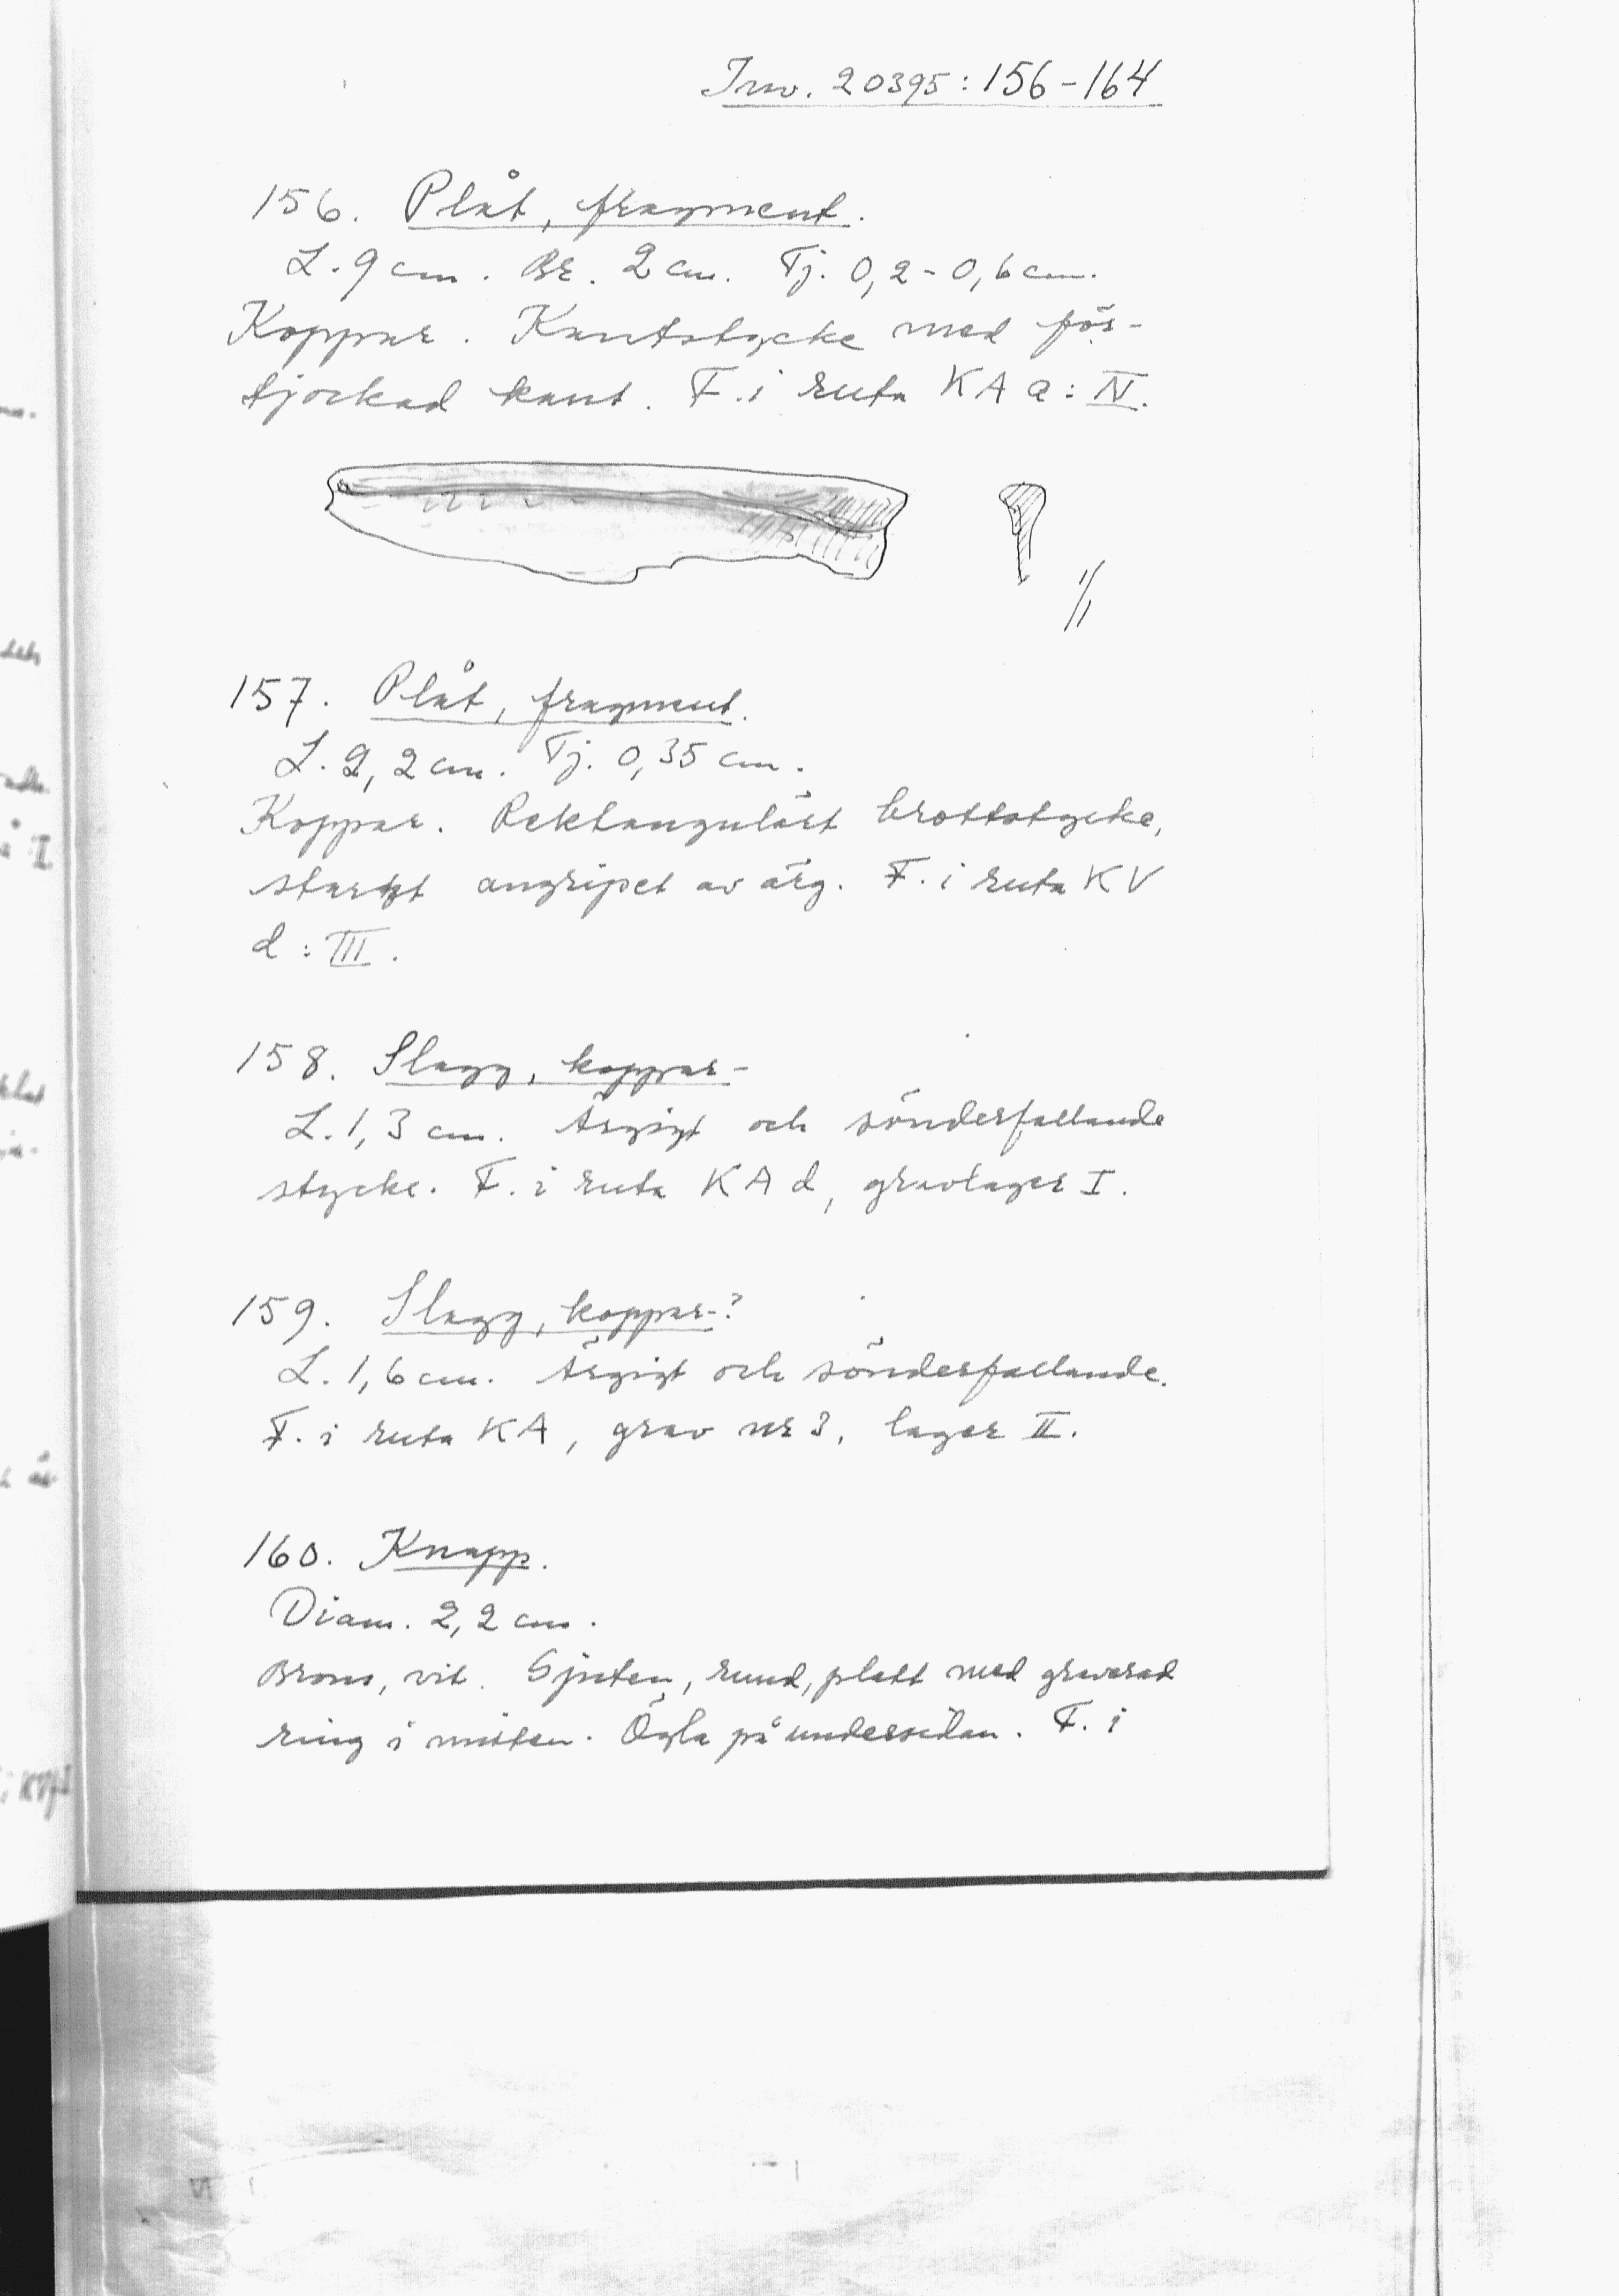 Inv. 20395:156-164
156. Plåt, fragment.
L. 9 cm. Br. 2 cm. Tj. 0,2-0,6 cm.
Koppar. Kantstycke med för-
tjockad kant. F. i ruta KA a: IV.
1/1
157. Plåt, fragment.
L. 2,2 cm. Tj. 0,35 cm.
Koppar. Rektangulärt brottstycke,
starkt angripet av ärg. F. i ruta KV
d: III.
158. Slagg, koppar-
L. 1,3 cm. Ärgigt och sönderfallande
stycke. F. i ruta KA d, gravlager I.
159. Slagg, koppar-?
L. 1,6 cm. Ärgigt och sönderfallande.
F. i ruta KA, grav nr 3, lager II.
160. Knapp.
Diam. 2,2 cm.
Brons, vit. Gjuten, rund, platt med graverad
ring i mitten. Ögla på undersidan. F. i